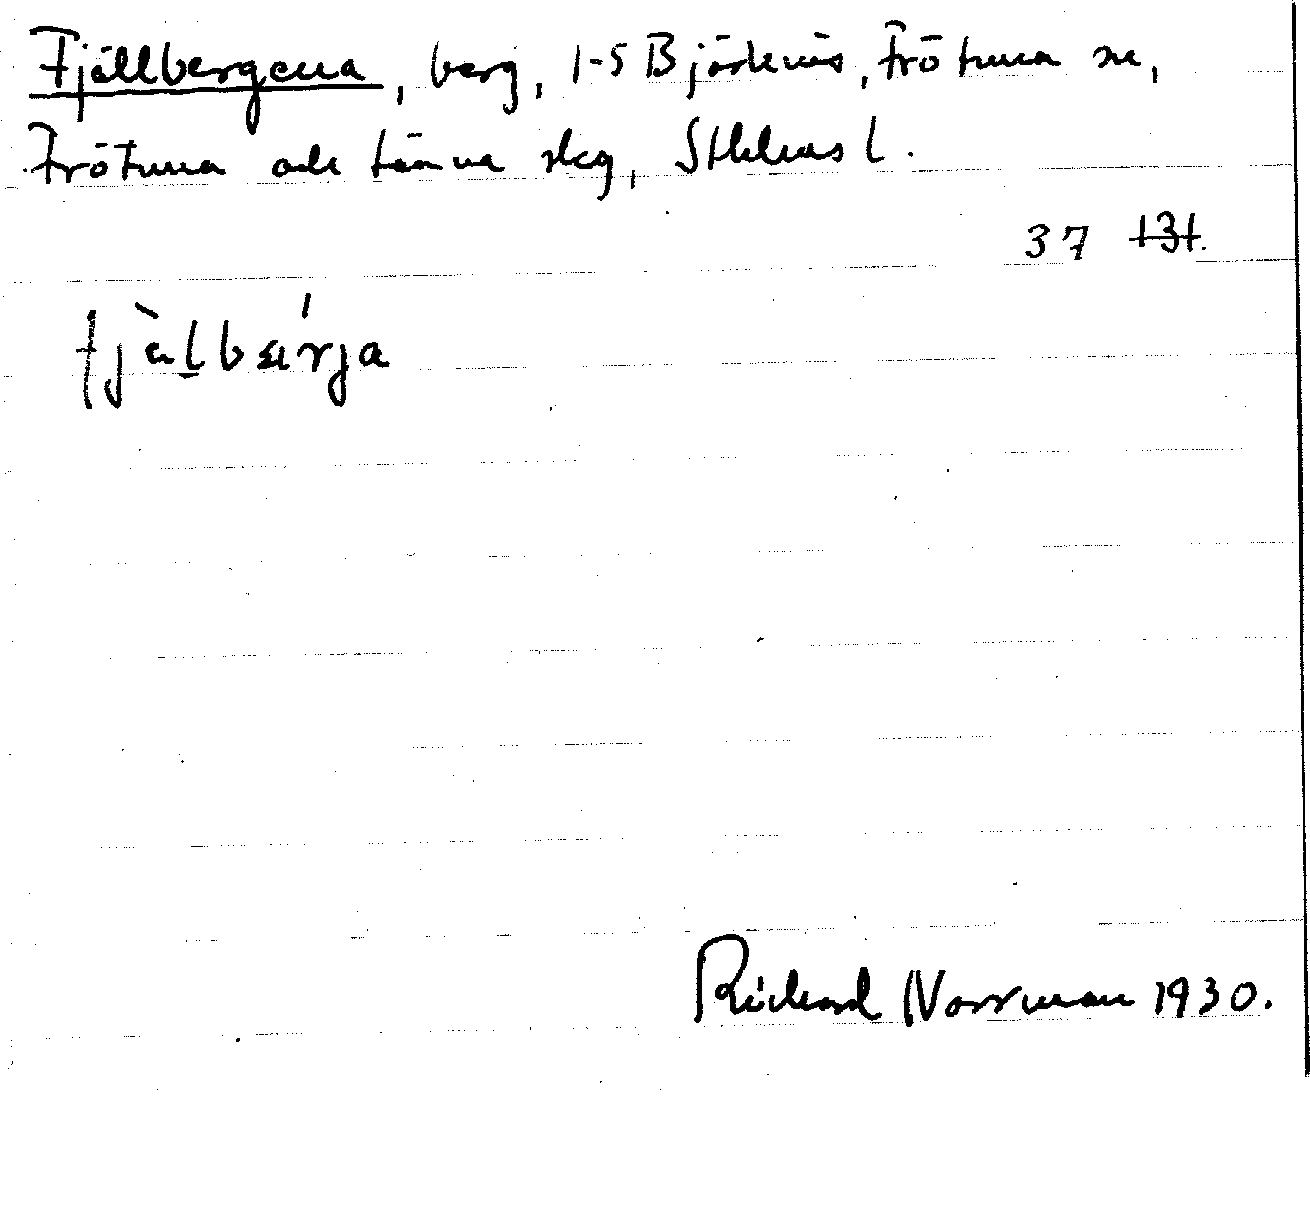 Fjällbergena, berg, 1-5 Björknäs, Frötuna sn,
Frötuna och Länna skg, Sthlms l.
37
fjàlbǽrja
Richard Norrman 1930.